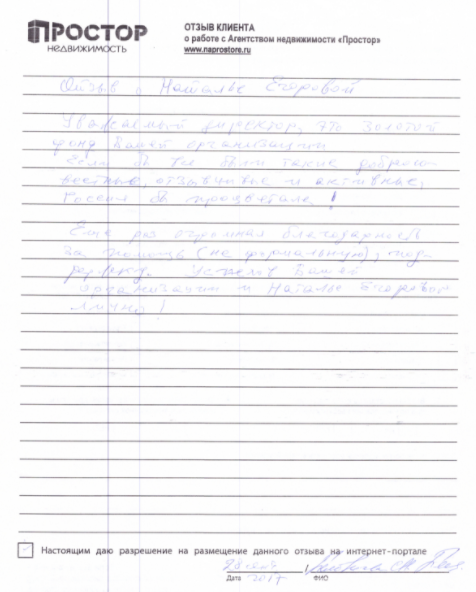 ПРОСТОР
НЕДВИЖИМОСТЬ
ОТЗЫВ КЛИЕНТА
о работе с Агентством недвижимости «Простор»
www.naprostore.ru
Отзыв о Наталье Егоровой
Уважаемый директор, это золотой
фонд Вашей организации
Если бы все были такие добросо-
вестные, отзывчивые и активные,
Россия бы процветала!
Еще раз огромная благодарность
за помощь (не формальную), под-
держку. Успехов Вашей
организации и Наталье Егоровой
лично!
Настоящим даю разрешение на размещение данного отзыва на интернет-портале
28
Дата 2017 ФИО